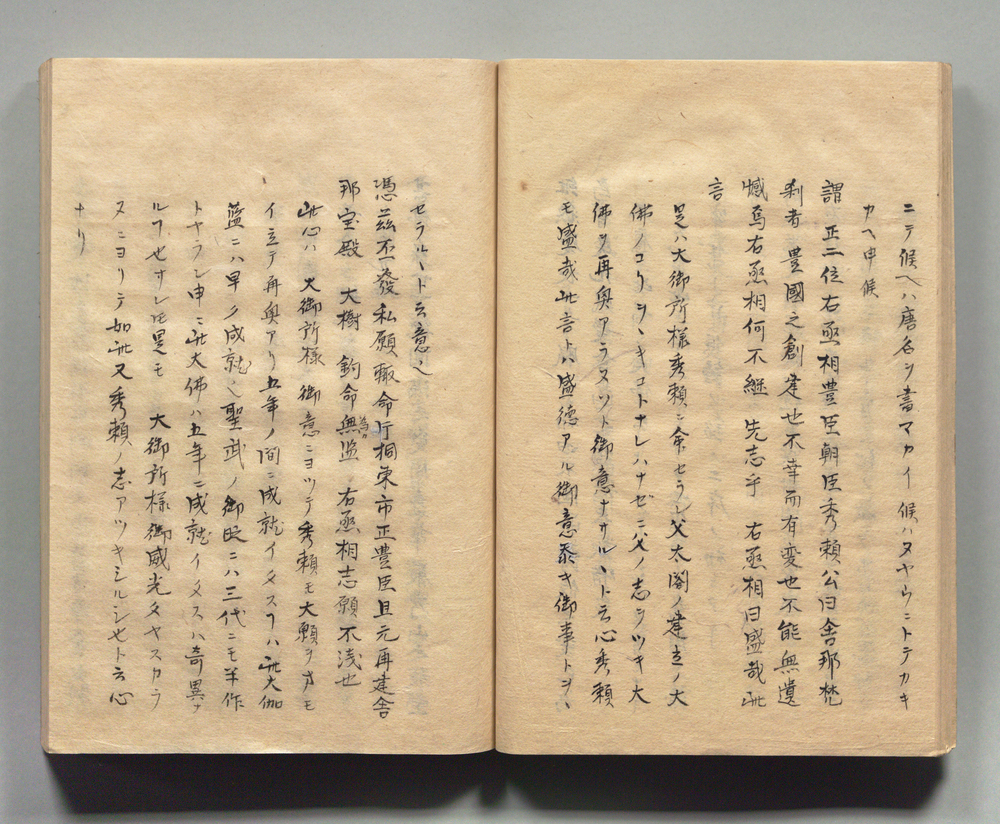 ニテ候ヘハ唐名ヲ書マカイ候ハヌヤウニトテカキ
カヘ申候
謂 正二位右丞相豊臣朝臣秀頼公曰舎那梵
刹者 豊國之創建也不幸而有変也不能無遺
憾焉右丞相何不継 先志乎 右丞相曰盛哉此
言
是ハ大御所様秀頼ニ命セラレ父太閤ノ建立ノ大
佛ノコリヲヽキコトナレハナゼニ父ノ志ヲツキ大
佛ヲ再興アラヌソト御意ナサルヽト云心秀頼
モ盛哉此言トハ盛徳アル御意忝キ御事トヲヽ
セラルヽト云意也
憑茲丕發私願輙命片桐東市正豊臣且元再建舎
那宝殿 大樹 鈞命無監 右丞相志願不浅也
此心ハ 大御所様 御意ニヨツテ秀頼モ大願ヲオモ
イ立テ再興アリ五年ノ間ニ成就イタスヿハ此大伽
藍ニハ早ク成就也聖武ノ御時ニハ三代ニモ半作
トヤラン申ニ此大佛ハ五年ニ成就イタスハ奇異ナ
ルヿ也サレ𪜈是モ 大御所様御威光タヤスカラ
ヌニヨリテ如此又秀頼ノ志アツキシルシセト云心
ナリ